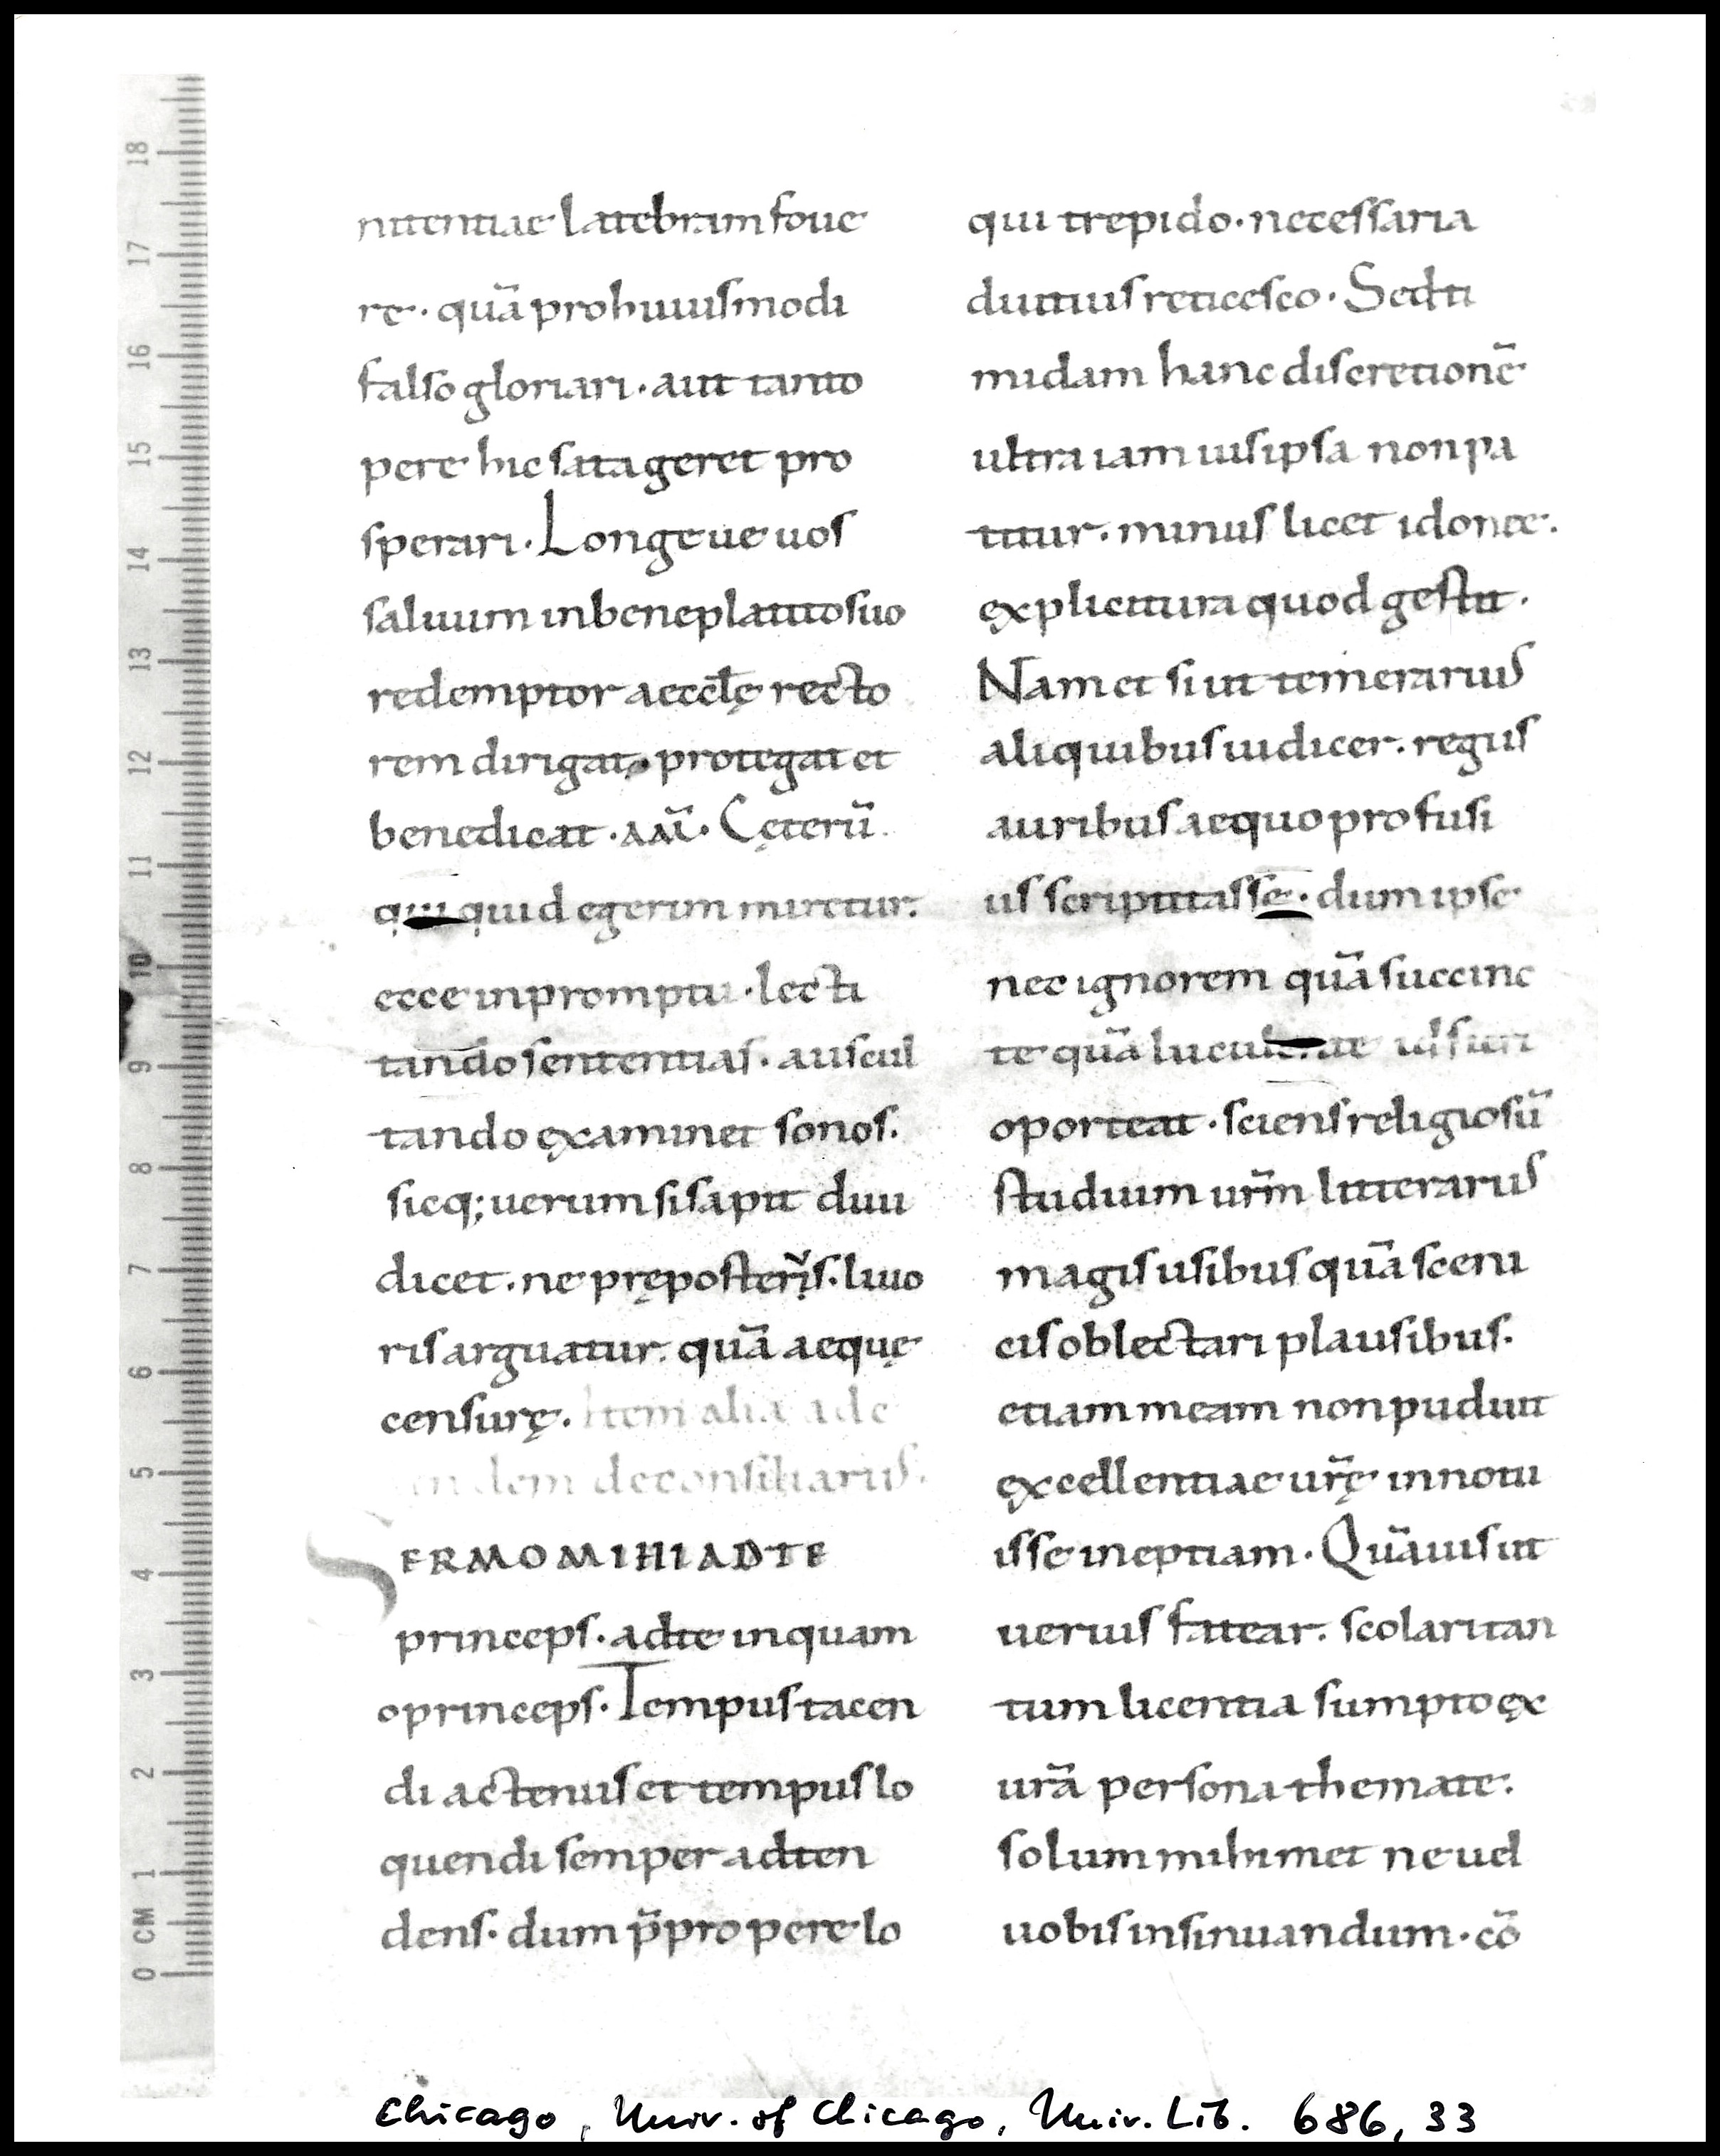 nitentiae latebram foue
re · quā pro huiuſmodi
falſo gloriari · aut tanto
pere hic ſatageret pro
ſperari · Longeue uos
ſaluum in beneplacito ſuo
redemptor aeccl̄ę recto
rem dirigat · protegat et
benedicat · Ceterū
quiquid egerim miretur ·
ecce in promptu · lecti
tando ſententiaſ · auſcul
tando ęxaminet ſonoſ ·
ſicq; uerum ſi ſapit diiu
dicet · ne prępoſterīſ · liuo
riſ arguatur · quā aequę
cenſurę · Item alia ad e
undem de conſiliariiſ ·
SERMO MIHI AD TE
princepſ · ad te inquam
o princepſ · Tempuſ tacen
di actenuſ et tempuſ lo
quendi ſemper adten
denſ · dum p̄propere lo
qui trepido · neceſſaria
diutiuſ reticeſco · Sed ti
midam hanc diſcretionē
ultra iam uiſ ipſa non pa
titur · minuſ licet idonee ·
ęxplicitura quod geſtit ·
Nam et ſi ut temerariuſ
aliquibuſ iudicer · regiiſ
auribuſ aequo profuſi
uſ ſcriptitaſſe · dum ipſe
nec ignorem quā ſuccinc
te quā luculente
oporteat · ſcienſ religioſū
ſtudium ur̄m litterariiſ
magiſ uſibuſ quā ſceni
ciſ oblectari plauſibuſ ·
etiam meam non puduit
ęxcellentiae ur̄ę innotu
iſſe ineptiam · Quāuiſ ut
ueriuſ fatear · ſcolari tan
tum licentia ſumpto ęx
ur̄ā perſona themate ·
ſolum mihimet ne uel
uobiſ inſinuandum · cō
0 CM 1 2 3 4 5 6 7 8 9 10 11 12 13 14 15 16 17 18
Chicago, Univ. of Chicago, Univ. Lib. 686, 33